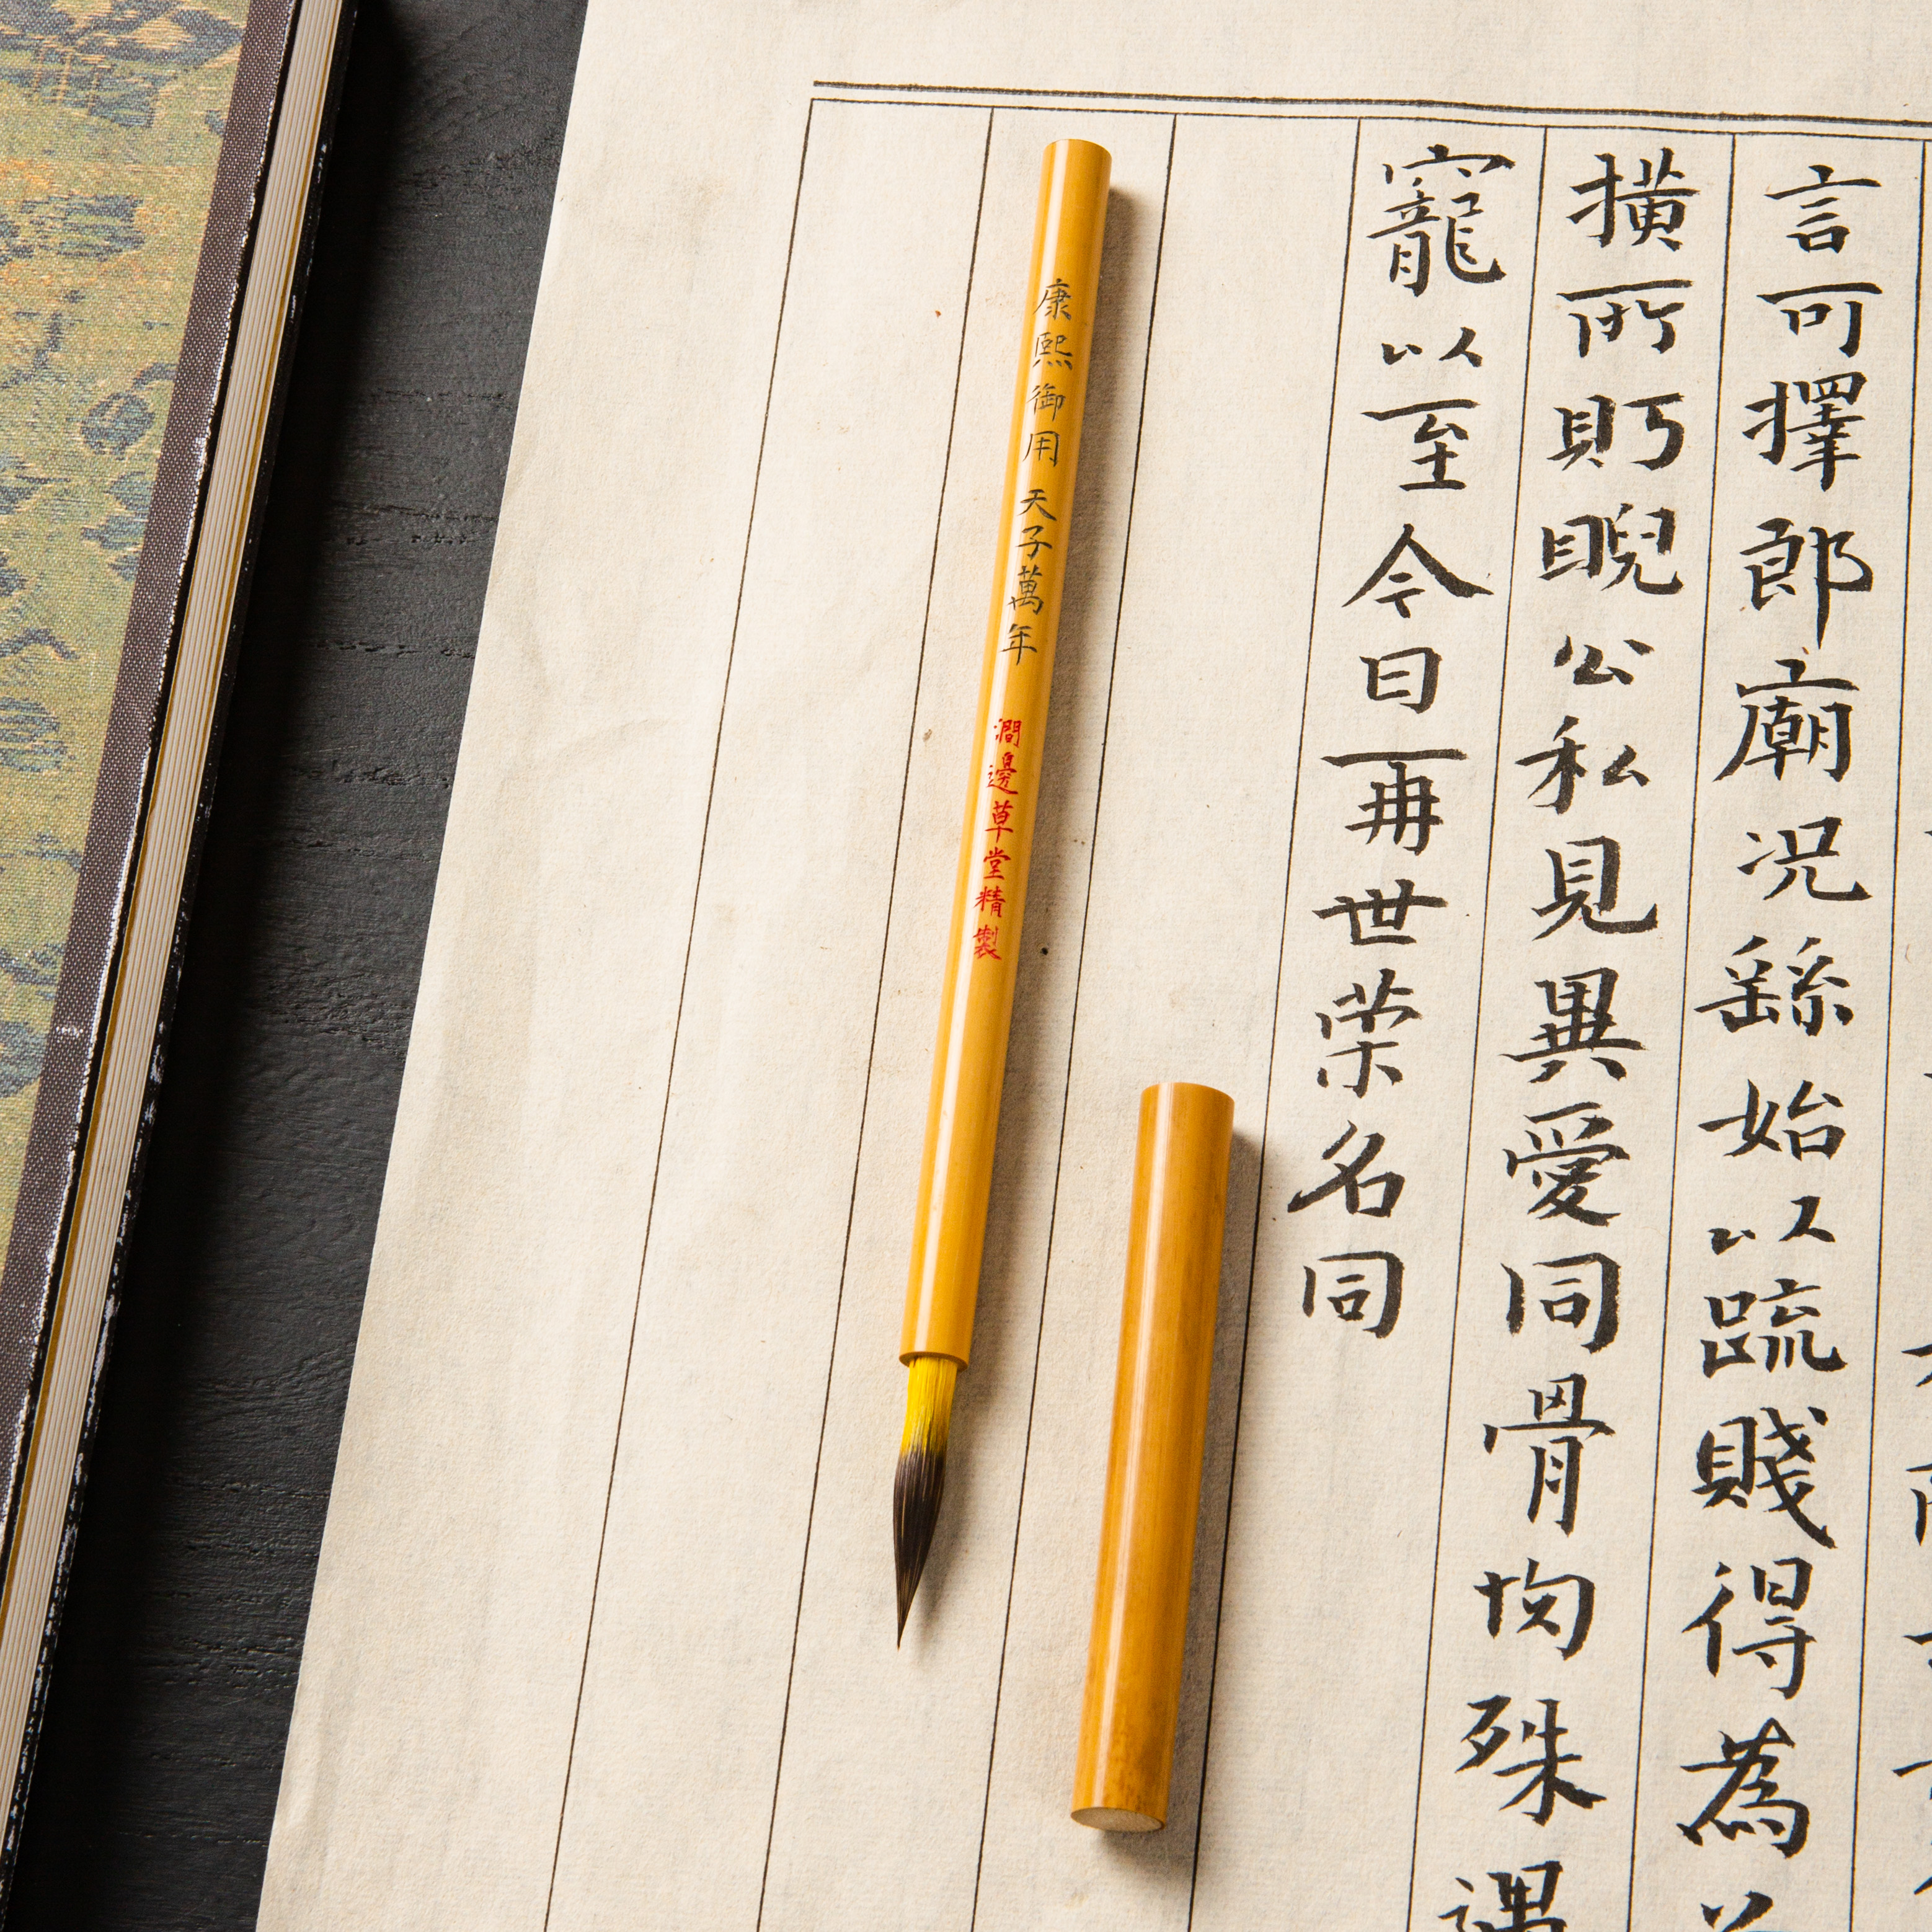 言可擇郎廟况繇始以疏賤得為
撗所睨公私見異愛同骨均殊遇
寵以至今日再世荣名同
康熙御用 天子萬年 澗邊草堂精製